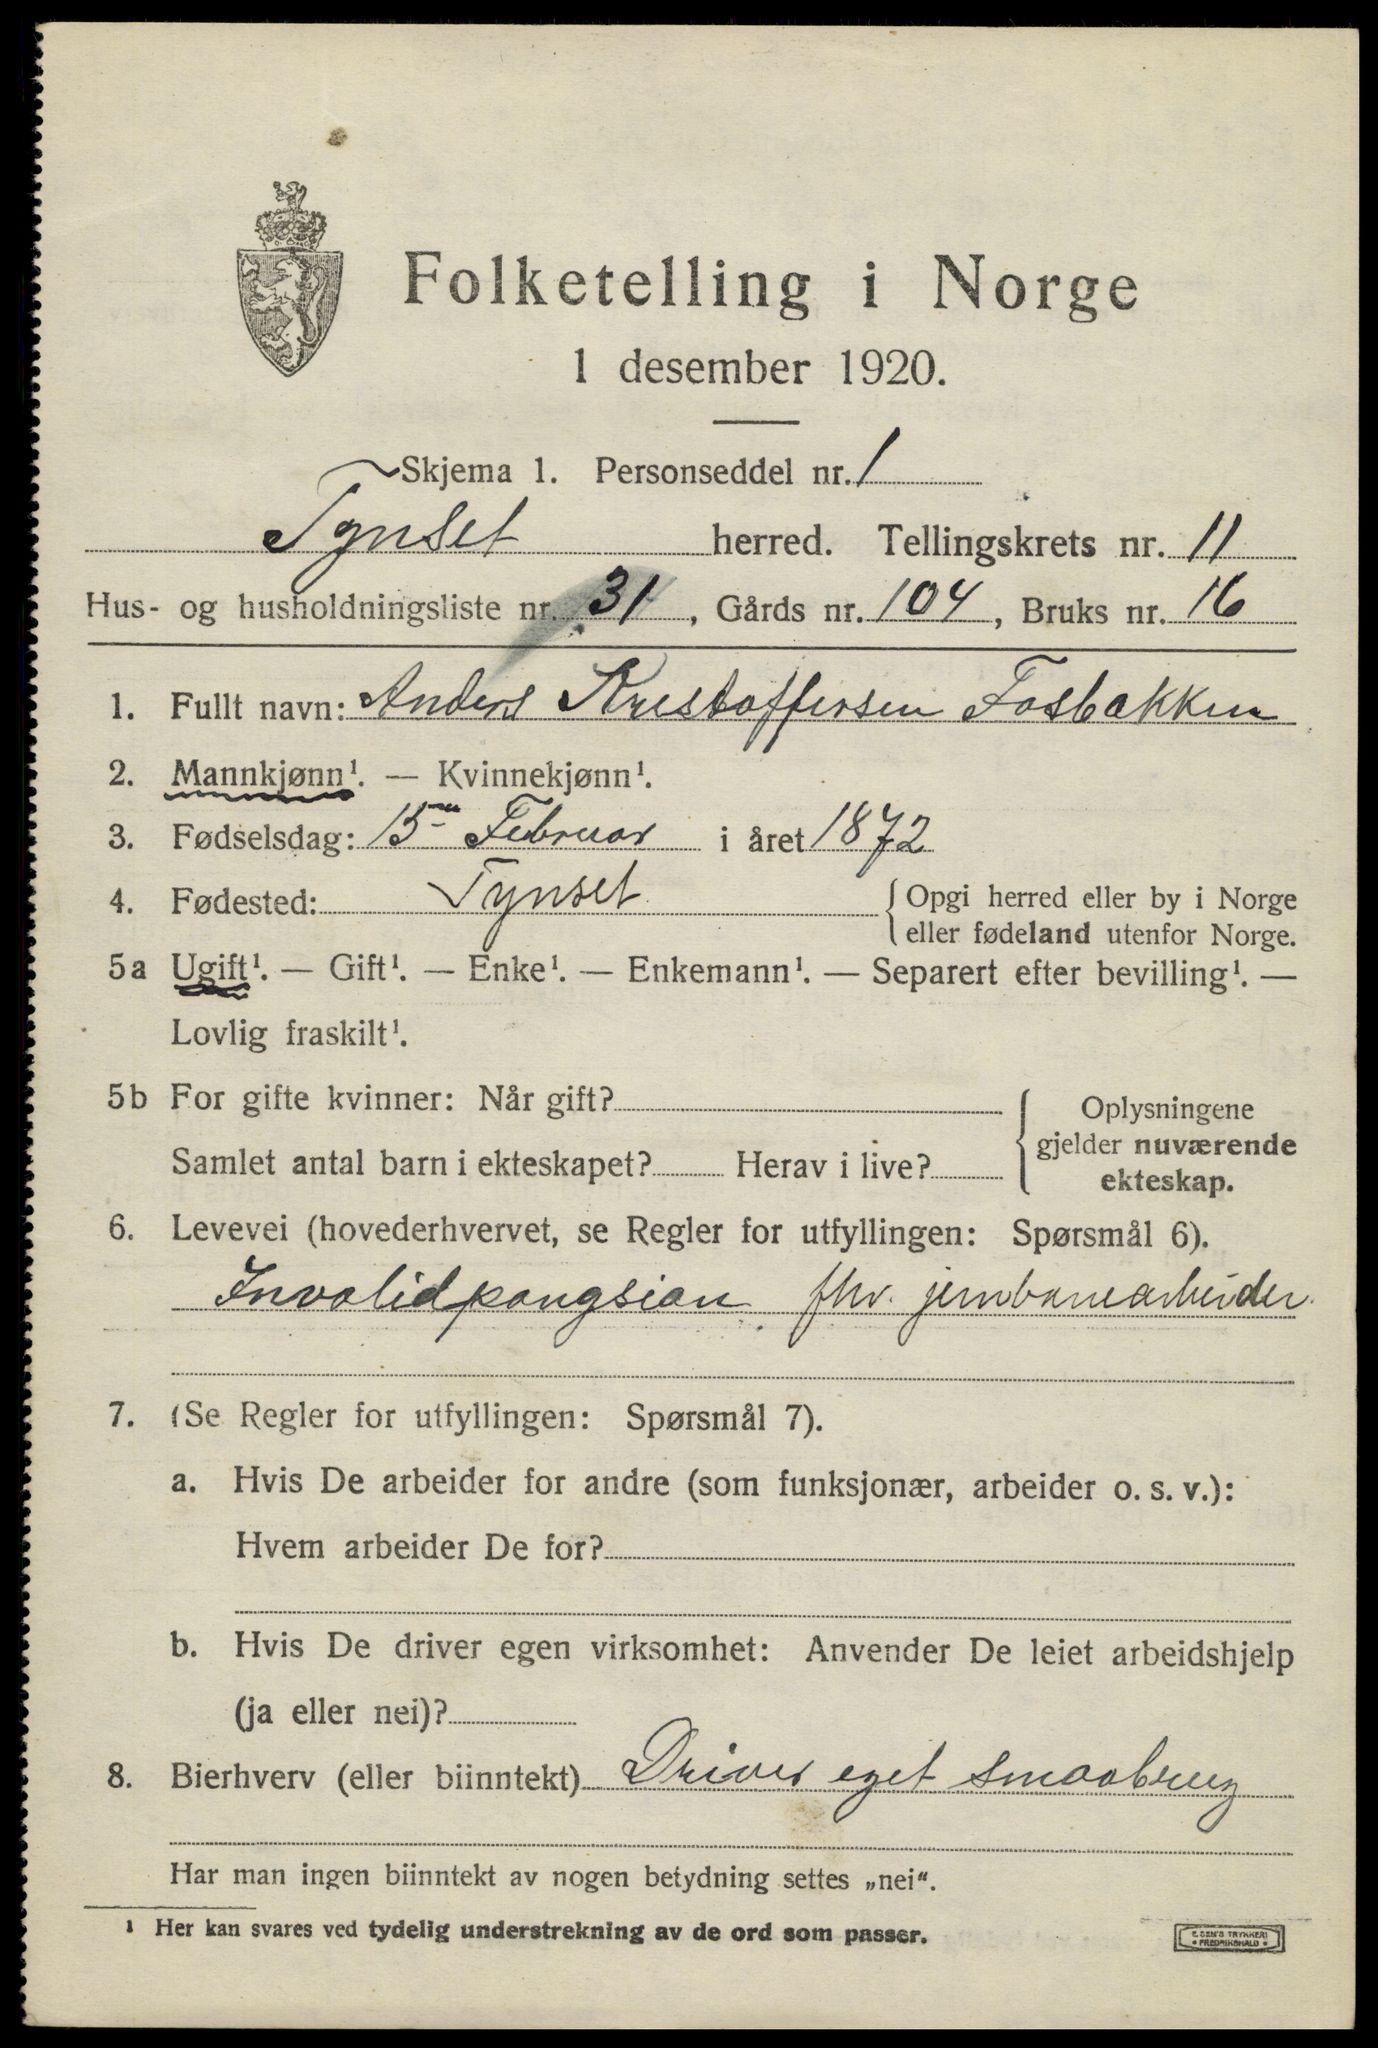 Folketelling i Norge
1 desember 1920.
Skjema 1. Personseddel nr. 1
Tynset herred. Tellingskrets nr. 11
Hus- og husholdningsliste nr. 31, Gårds nr. 104, Bruks nr. 16
1. Fullt navn: Anders Kristoffersen Fosbakken
2. Mannkjønn¹. — Kvinnekjønn¹.
3. Fødselsdag: 15de Februar i året 1872
4. Fødested: Tynset {Opgi herred eller by i Norge
eller fødeland utenfor Norge.
5a Ugift¹. — Gift¹. — Enke¹. — Enkemann¹. — Separert efter bevilling¹. —
Lovlig fraskilt¹.
5b For gifte kvinner: Når gift?
Samlet antal barn i ekteskapet? Herav i live?
Oplysningene
gjelder nuværende
ekteskap.
6. Levevei (hovederhvervet, se Regler for utfyllingen: Spørsmål 6).
Invalidpangsion fhv. jernbanearbeider
7. (Se Regler for utfyllingen: Spørsmål 7).
a. Hvis De arbeider for andre (som funksjonær, arbeider o. s. v.):
Hvem arbeider De for?
b. Hvis De driver egen virksomhet: Anvender De leiet arbeidshjelp
(ja eller nei)?
8. Bierhverv (eller biinntekt) Driver eget smaabrug
Har man ingen biinntekt av nogen betydning settes „nei“.
¹ Her kan svares ved tydelig understrekning av de ord som passer.
E. SEM'S TRYKKERI
• FREDRIKSHALD •